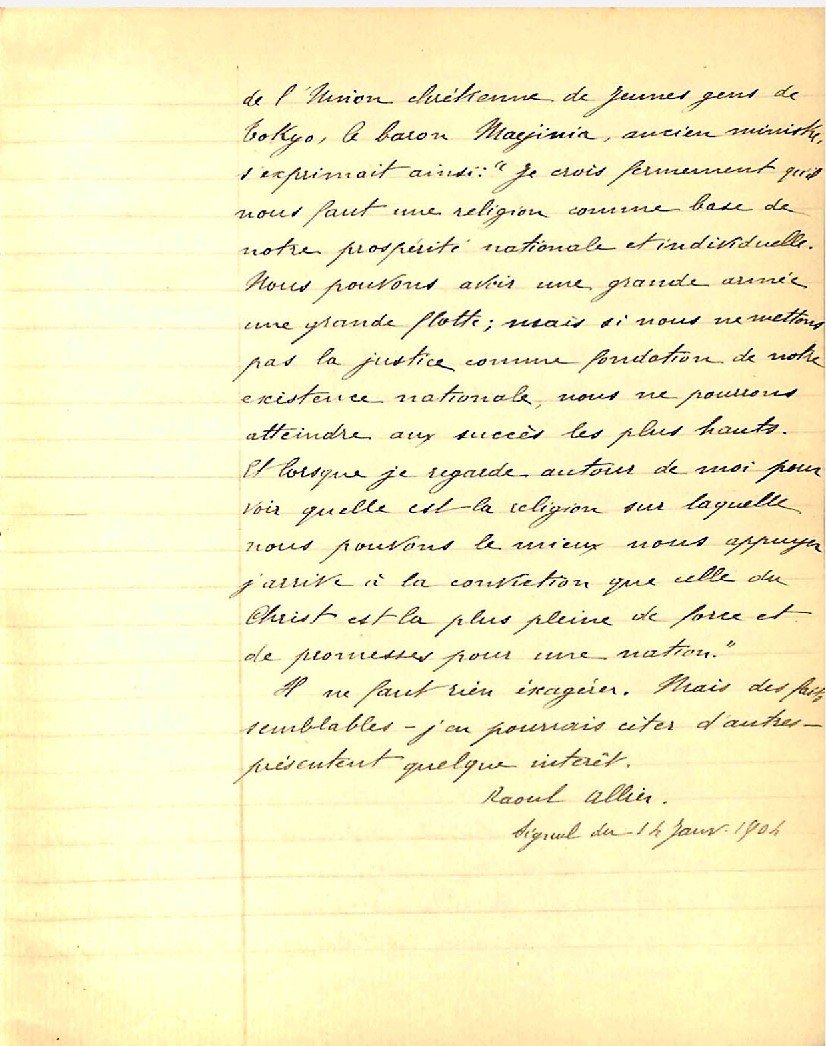 de l'Union chrétienne de Jeunes gens de
Tokyo, le baron Maejima, ancien ministre,
s'exprimait ainsi: "Je crois fermement qu'il
nous faut une religion comme base de
notre prospérité nationale et individuelle.
Nous pouvons avoir une grande armée
une grande flotte; mais si nous ne mettons
pas la justice comme fondation de notre
existence nationale, nous ne pourrons
atteindre aux succès les plus hauts.
Et lorsque je regarde autour de moi pour
voir quelle est la religion sur laquelle
nous pouvons le mieux nous appuyer
j'arrive à la conviction que celle du
Christ est la plus pleine de force et
de promesses pour une nation."
Il ne faut rien éxagérer. Mais des faits
semblables - j'en pourrais citer d'autres -
présentent quelque intérêt.
Raoul Allier.
Signal du 14 Janv. 1904